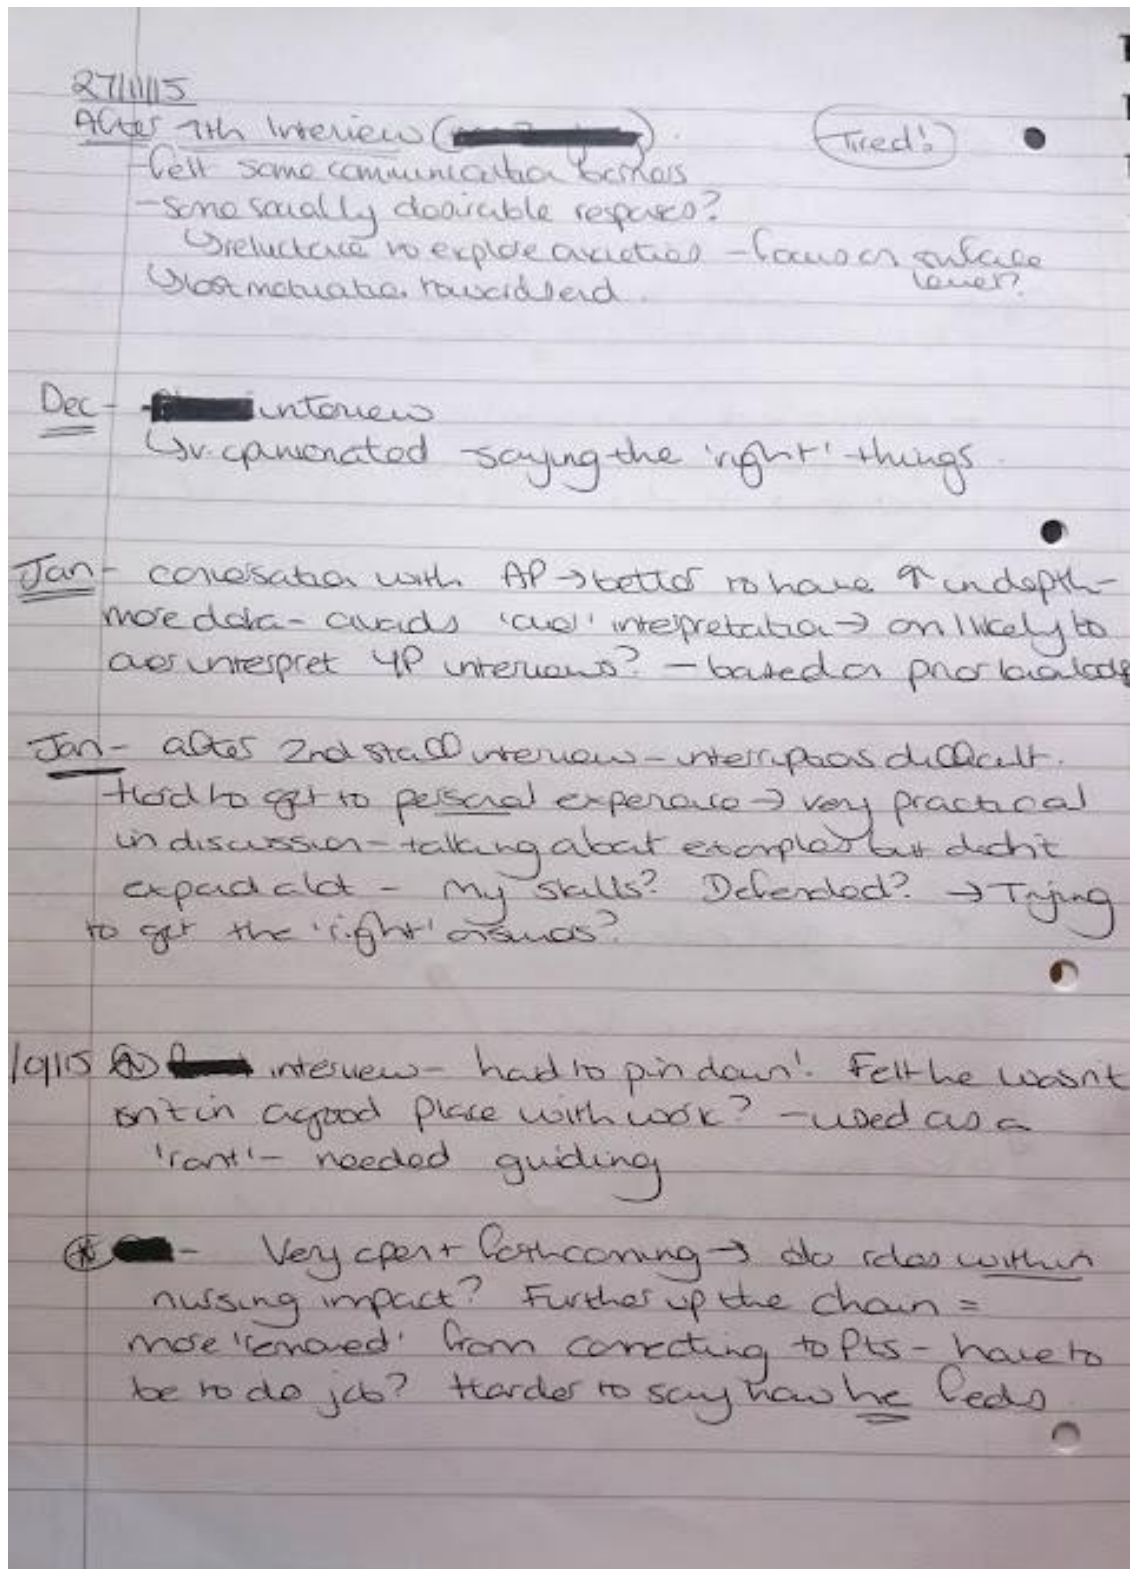 27/11/15
After 7th Interview ( ). Tired!
- felt some communication barriers
- some socially desirable responses?
↳ reluctance to explore anxieties - focus on surface level?
↳ lost motivation towards end.
Dec - interview
↳ v. opinionated - saying the 'right' things.
Jan - conversation with AP → better to have ↑ in depth -
more data - avoids 'over' interpretation → am I likely to
over interpret YP interviews? - based on prior knowledge
Jan - after 2nd staff interview - interruptions difficult.
Hard to get to personal experience → very practical
in discussion - talking about examples but didn't
expand alot - My skills? Defended? → Trying
to get the 'right' answers?
/01/15 interview - hard to pin down! Felt he wasn't
in a good place with work? - used as a
'rant' - needed guiding
- Very open + forthcoming → do roles within
nursing impact? Further up the chain =
more 'removed' from connecting to Pts - have to
be to do job? Harder to say how he feels